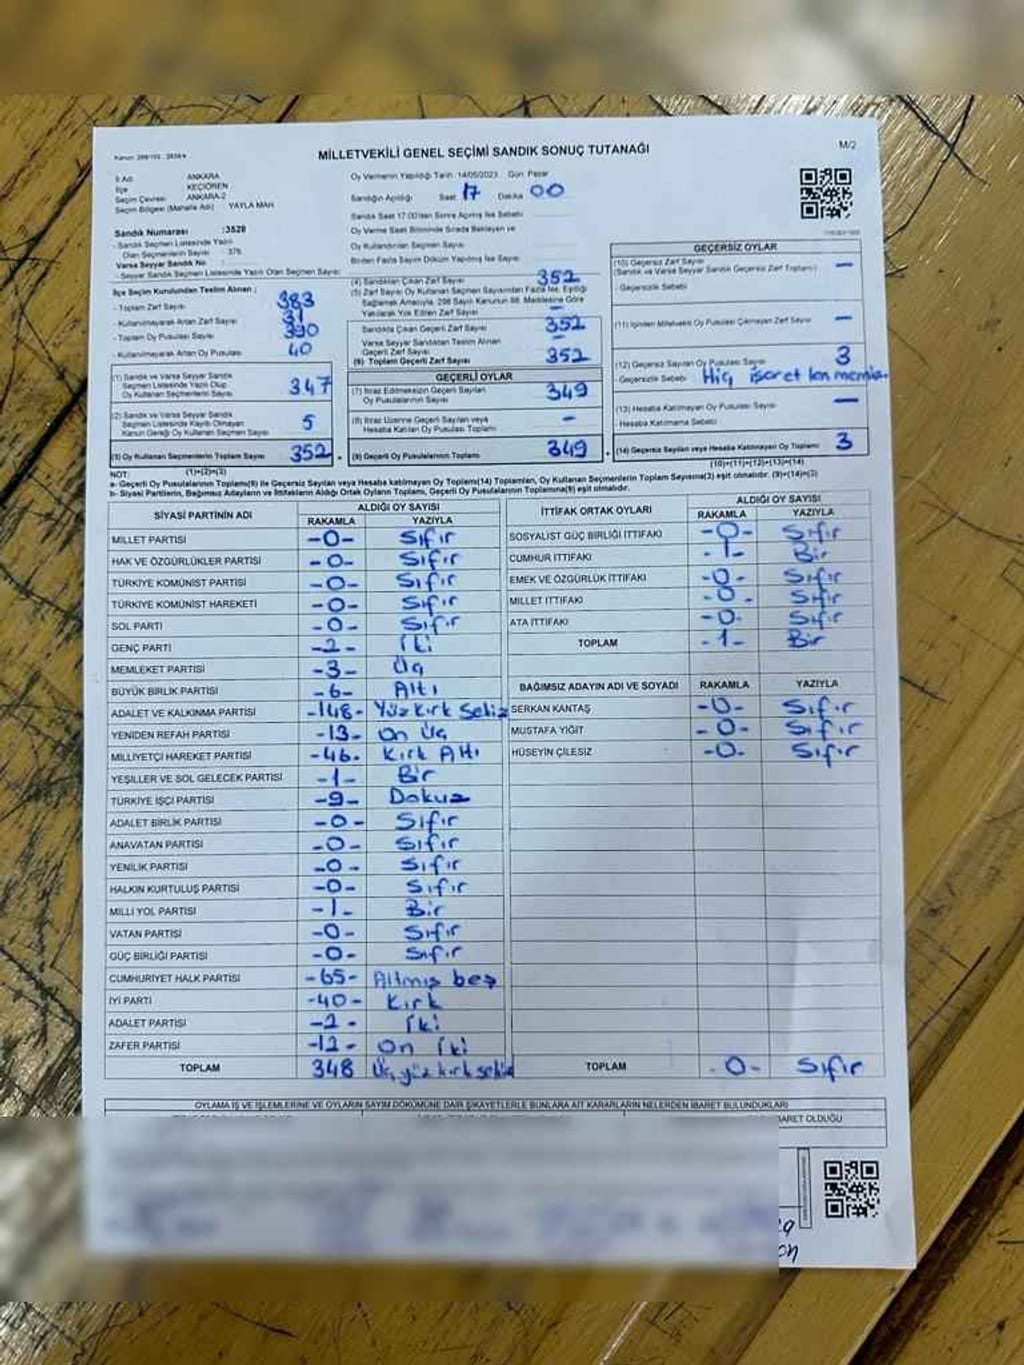 MİLLETVEKİLİ GENEL SEÇİMİ SANDIK SONUÇ TUTANAĞI
M/2
İl Adı: ANKARA
İlçe KEÇİÖREN
Seçim Çevresi ANKARA-2
Seçim Bölgesi (Mahalle Adı) : YAYLA MAH
Sandık Numarası :3528
- Sandık Seçmen Listesinde Yazılı
Olan Seçmenlerin Sayısı : 375
Varsa Seyyar Sandık No :
- Seyyar Sandık Seçmen Listesinde Yazılı Olan Seçmen Sayısı:
Oy Vermenin Yapıldığı Tarih :14/05/2023 Gün: Pazar
Sandığın Açıldığı Saat 17 Dakika 00
Sandık Saat 17.00'den Sonra Açılmış İse Sebebi
Oy Verme Saati Bitiminde Sırada Bekleyen ve
Oy Kullandırılan Seçmen Sayısı
Birden Fazla Sayım Döküm Yapılmış İse Sayısı
İlçe Seçim Kurulundan Teslim Alınan :
- Toplam Zarf Sayısı 383
- Kullanılmayarak Artan Zarf Sayısı 31
- Toplam Oy Pusulası Sayısı 390
- Kullanılmayarak Artan Oy Pusulası 40
(1) Sandık ve Varsa Seyyar Sandık
Seçmen Listesinde Yazılı Olup
Oy Kullanan Seçmenlerin Sayısı 347
(2) Sandık ve Varsa Seyyar Sandık
Seçmen Listesinde Kayıtlı Olmayan
Kanun Gereği Oy Kullanan Seçmen Sayısı 5
(3) Oy Kullanan Seçmenlerin Toplam Sayısı 352
(1)+(2)=(3)
(4) Sandıktan Çıkan Zarf Sayısı 352
(5) Zarf Sayısı Oy Kullanan Seçmen Sayısından Fazla İse, Eşitliği
Sağlamak Amacıyla, 298 Sayılı Kanunun 98. Maddesine Göre
Yakılarak Yok Edilen Zarf Sayısı –
Sandıkta Çıkan Geçerli Zarf Sayısı 352
Varsa Seyyar Sandıktan Teslim Alınan
Geçerli Zarf Sayısı –
(6) Toplam Geçerli Zarf Sayısı 352
GEÇERLİ OYLAR
(7) İtiraz Edilmeksizin Geçerli Sayılan
Oy Pusulalarının Sayısı 349
(8) İtiraz Üzerine Geçerli Sayılan veya
Hesaba Katılan Oy Pusulası Toplamı –
(9) Geçerli Oy Pusulalarının Toplamı 349
GEÇERSİZ OYLAR
(10) Geçersiz Zarf Sayısı –
(Sandık ve Varsa Seyyar Sandık Geçersiz Zarf Toplamı)
- Geçersizlik Sebebi
(11) İçinden Milletvekili Oy Pusulası Çıkmayan Zarf Sayısı –
(12) Geçersiz Sayılan Oy Pusulası Sayısı 3
- Geçersizlik Sebebi Hiç işaretlenmemiş.
(13) Hesaba Katılmayan Oy Pusulası Sayısı –
- Hesaba Katılmama Sebebi
(14) Geçersiz Sayılan veya Hesaba Katılmayan Oy Toplamı 3
(10)+(11)+(12)+(13)=(14)
NOT:
a- Geçerli Oy Pusulalarının Toplamı(9) ile Geçersiz Sayılan veya Hesaba Katılmayan Oy Toplamı(14) Toplamları, Oy Kullanan Seçmenlerin Toplam Sayısına(3) eşit olmalıdır. (9)+(14)=(3)
b- Siyasi Partilerin, Bağımsız Adayların ve İttifakların Aldığı Ortak Oyların Toplamı, Geçerli Oy Pusulalarının Toplamına(9) eşit olmalıdır.
SİYASİ PARTİNİN ADI ALDIĞI OY SAYISI
RAKAMLA YAZIYLA
MİLLET PARTİSI -0- Sıfır
HAK VE ÖZGÜRLÜKLER PARTİSİ -0- Sıfır
TÜRKİYE KOMÜNİST PARTİSİ -0- Sıfır
TÜRKİYE KOMÜNİST HAREKETİ -0- Sıfır
SOL PARTİ -0- Sıfır
GENÇ PARTİ -2- İki
MEMLEKET PARTİSİ -3- Üç
BÜYÜK BİRLİK PARTİSİ -6- Altı
ADALET VE KALKINMA PARTİSİ -148- Yüzkırk Sekiz
YENİDEN REFAH PARTİSİ -13- On Üç
MİLLİYETÇİ HAREKET PARTİSİ -46- Kırk Altı
YEŞİLLER VE SOL GELECEK PARTİSİ -1- Bir
TÜRKİYE İŞÇİ PARTİSİ -9- Dokuz
ADALET BİRLİK PARTİSİ -0- Sıfır
ANAVATAN PARTİSİ -0- Sıfır
YENİLİK PARTİSİ -0- Sıfır
HALKIN KURTULUŞ PARTİSİ -0- Sıfır
MİLLİ YOL PARTİSİ -1- Bir
VATAN PARTİSİ -0- Sıfır
GÜÇ BİRLİĞİ PARTİSİ -0- Sıfır
CUMHURİYET HALK PARTİSİ -65- Altmış beş
İYİ PARTİ -40- Kırk
ADALET PARTİSİ -2- İki
ZAFER PARTİSİ -12- On İki
TOPLAM 348 Üç yüz kırk sekiz
İTTİFAK ORTAK OYLARI ALDIĞI OY SAYISI
RAKAMLA YAZIYLA
SOSYALİST GÜÇ BİRLİĞİ İTTİFAKI -0- Sıfır
CUMHUR İTTİFAKI -1- Bir
EMEK VE ÖZGÜRLÜK İTTİFAKI -0- Sıfır
MİLLET İTTİFAKI -0- Sıfır
ATA İTTİFAKI -0- Sıfır
TOPLAM -1- Bir
BAĞIMSIZ ADAYIN ADI VE SOYADI RAKAMLA YAZIYLA
SERKAN KANTAŞ -0- Sıfır
MUSTAFA YİĞİT -0- Sıfır
HÜSEYİN ÇİLESİZ -0- Sıfır
TOPLAM -0- Sıfır
OYLAMA İŞ VE İŞLEMLERİNE VE OYLARIN SAYIM DÖKÜMÜNE DAİR ŞİKAYETLERLE BUNLARA AİT KARARLARIN NELERDEN İBARET BULUNDUKLARI
BARET OLDUĞU